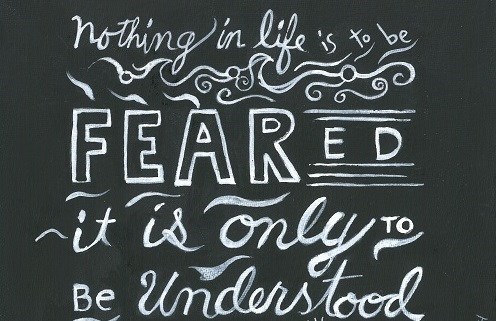 Nothing in life is to be
FEARED
it is only TO
Be Understood